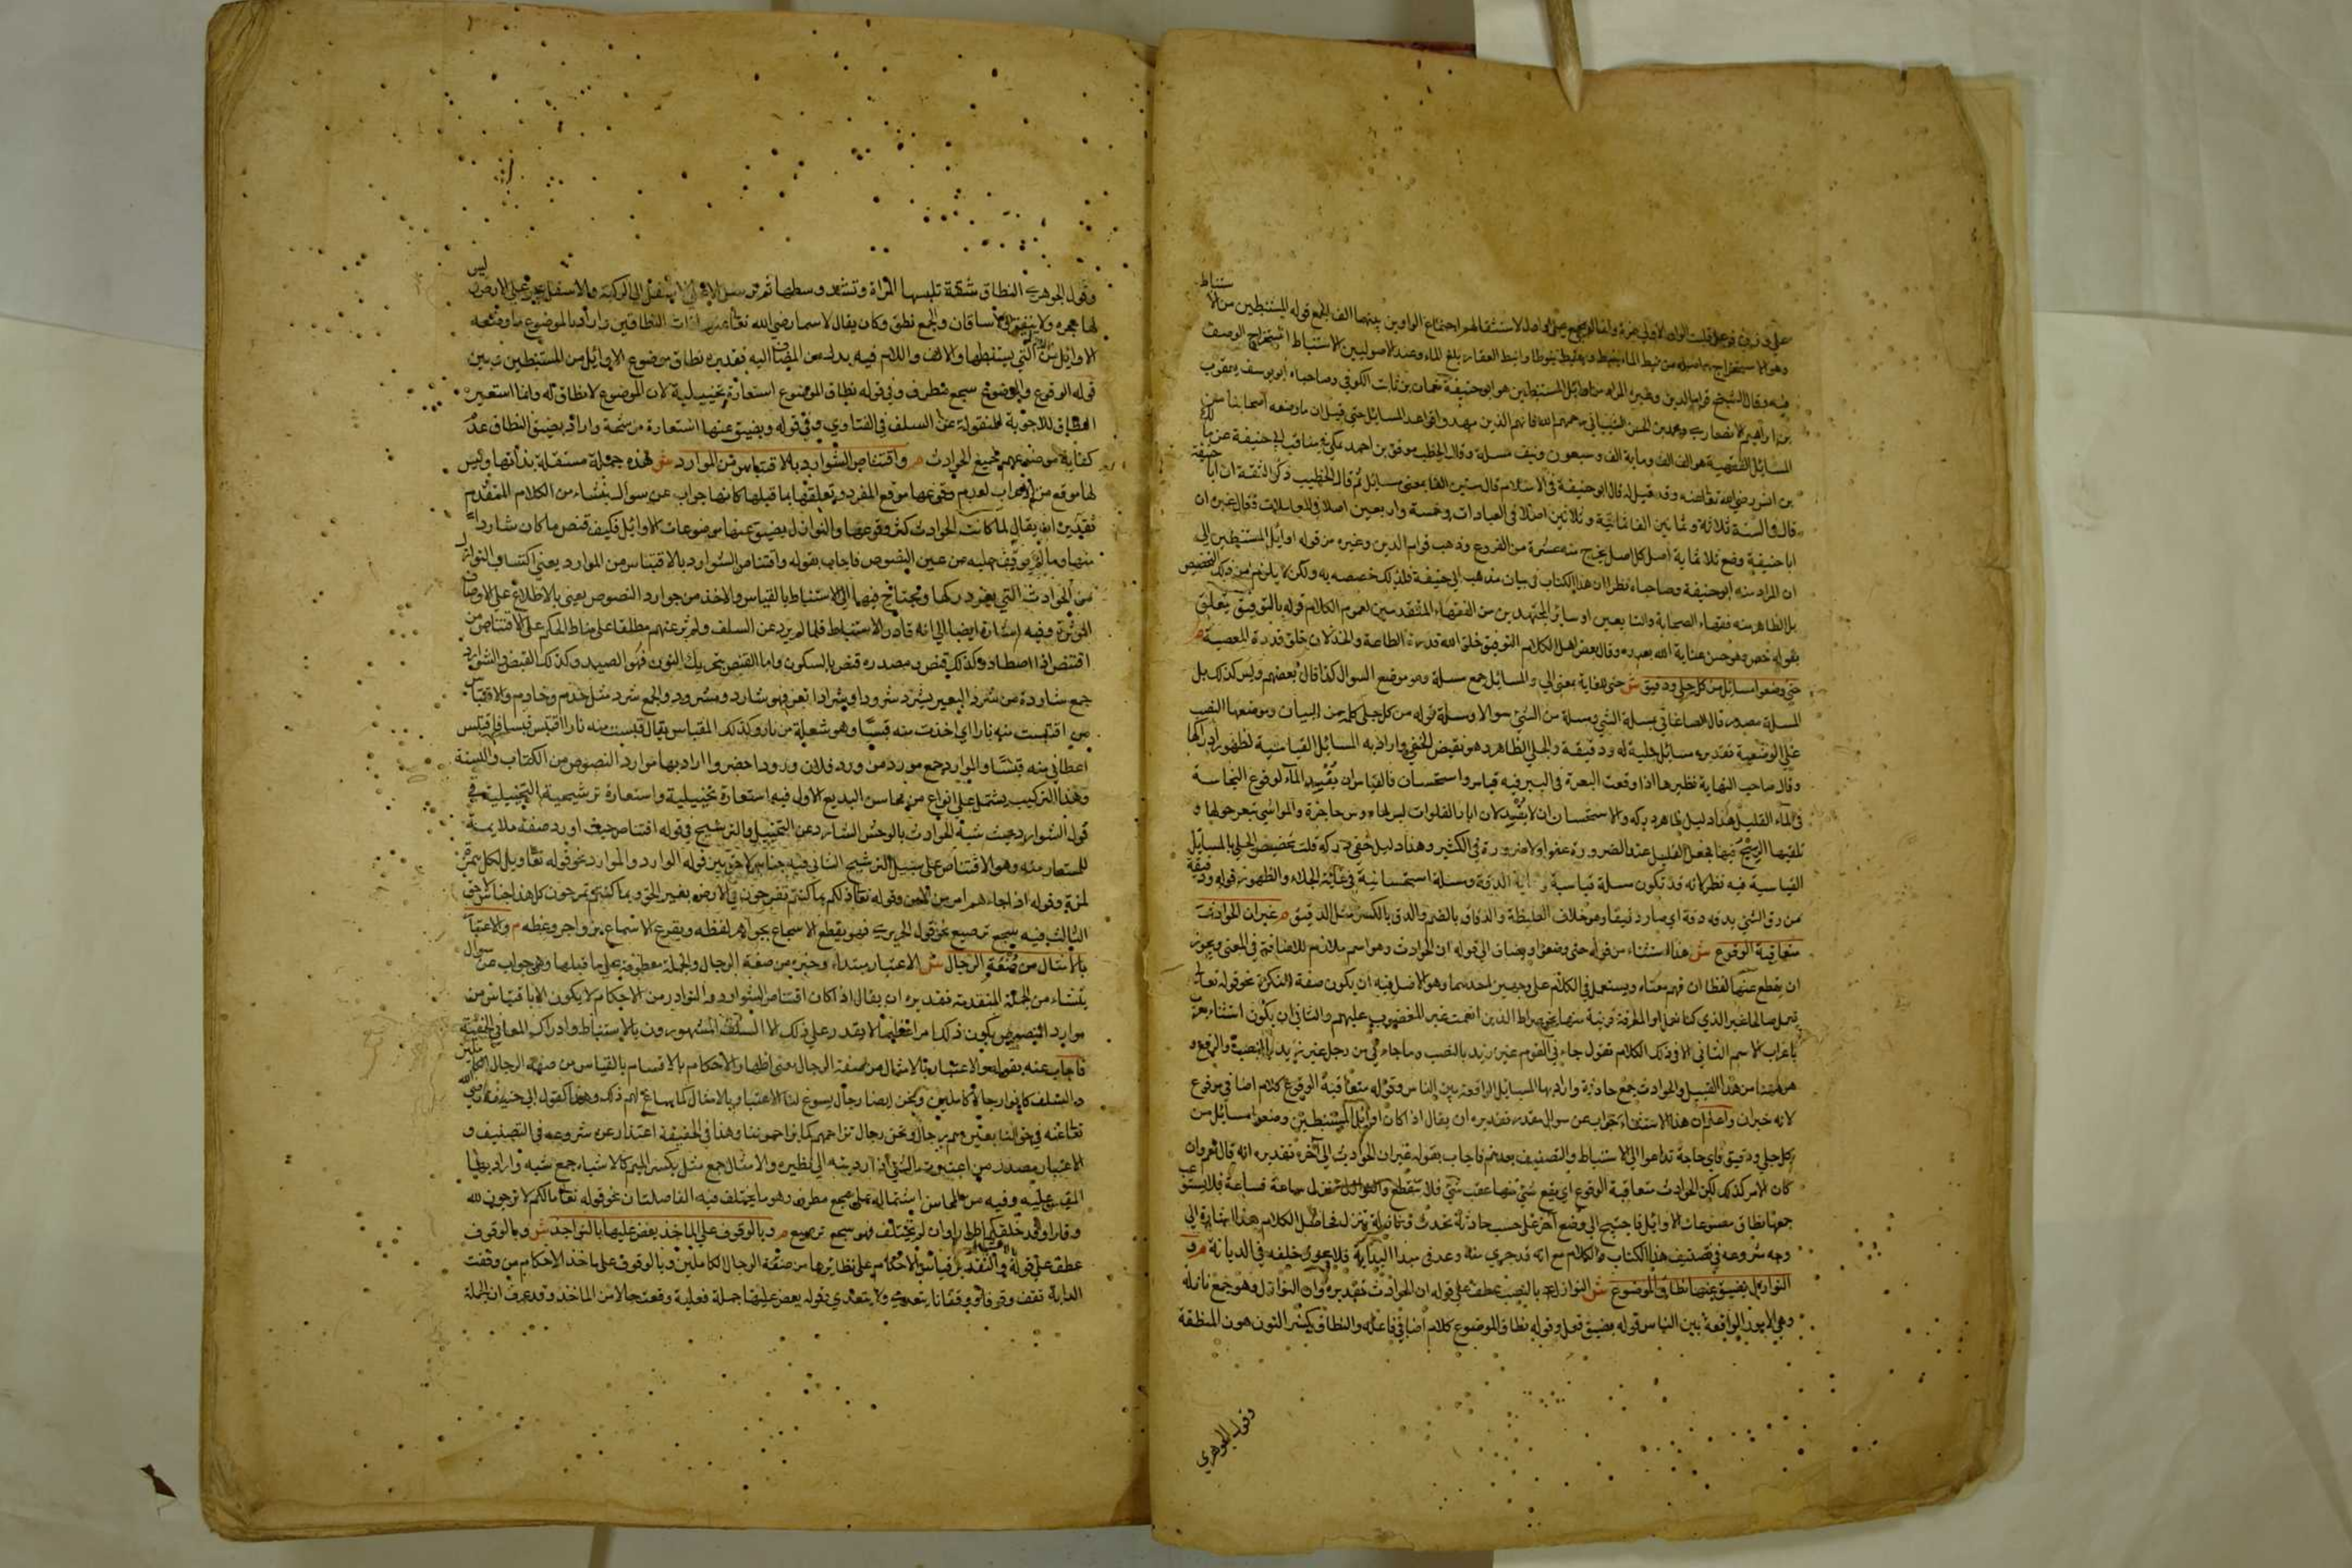 وهو الاستخراج
فيه وقال الشيخ قوام الدين وغيره المراد من اوائل المستنبطين هو ابو حنيفة نعمان بن ثابت الكوفي وصاحباه ابو يوسف يعقوب
بن ابراهيم الانصاري ومحمد بن الحسن الشيباني رحمهم الله فانهم الذين مهدوا قواعد المسائل حتى قيل ان ما وضعه اصحابنا من
المسائل الفقهية هو الف الف وماية الف وسبعون ونيف مسلة وقال الخطيب موفق بن احمد مكي في مناقب ابي حنيفة عن مالك
بن انس رضي الله تعالى عنه وقد قيل له قال ابو حنيفة في الاسلام قال ستين الفا يعني مسائل ثم قال الخطيب ذكر الثقة ان ابا حنيفة
قال في السنة ثلاثة وثمانين الفا ثمانية وثلاثين اصلا في العبادات وخمسة واربعين اصلا في المعاملات وقال غيره ان
ابا حنيفة وضع ثلاثماية اصل كل اصل يخرج منه عشرة من الفروع وذهب قوام الدين وغيره من قوله اوائل المستنبطين الى
ان المراد منه ابو حنيفة وصاحباه نظرا ان هذا الكتاب في بيان مذهب ابي حنيفة فلذلك خصصه به ولكن لا يلزم من ذلك التخصيص
بل الظاهر منه فقهاء الصحابة والتابعين او ساير المجتهدين من الفقهاء المتقدمين لعموم الكلام قوله بالتوفيق يتعلق
بقوله خص وهو حسن عناية الله بعبده وقال بعض اهل الكلام التوفيق خلق الله قدرة الطاعة والخذلان خلق قدرة المعصية م
حتى وضعوا مسائل من كل جلي ودقيق ش حتى للغاية بمعنى الى والمسائل جمع مسلة وهو موضع السوال كذا قال بعضهم وليس كذلك بل
المسلة مصدر قال الصاغاني مسلة الشي ومسلة من الشي سوالا ومسلة قوله من كل جلي كلمة من للبيان وموضعها النصب
على الوصفية تقديره مسائل جلية له ودقيقة والجلي الظاهر وهو نقيض الخفي واراد به المسائل القياسية لظهور ادراكها
وقال صاحب النهاية نظيرها اذا وقعت البعرة في البير فيه قياس واستحسان فالقياس ان يفسد الماء لوقوع النجاسة
في الماء القليل هذا دليل ظاهر دركه والاستحسان ان لا يفسد لان ابار الفلوات ليس لها روس حاجزة والمواشي تبعر حولها و
تلقيها الريح فيها فجعل القليل عفوا للضرورة ولا ضرورة في الكثير وهذا دليل خفي دركه قلت تخصيص الجلي بالمسائل
القياسية فيه نظر لانه قد تكون مسلة قياسية في غاية الدقة ومسلة استحسانية في غاية الجلاء والظهور قوله ودقيق
من دق الشي يدق دقة اي صار دقيقا وهو خلاف الغليظة والدقاق بالضم والدق بالكسر مثل الدقيق م غير ان الحوادث
متعاقبة الوقوع ش هذا استثناء من قوله حتى وضعوا ويضاف الى قوله ان الحوادث وهو اسم ملازم للاضافة في المعنى ويجوز
ان يقطع عنها لفظا ان فهم معناه ويستعمل في الكلام على وجهين احدهما وهو الاصل فيه ان يكون صفة للنكرة نحو قوله تعالى
نعمل صالحا غير الذي كنا نعمل او لمعرفة قريبة منها نحو صراط الذين انعمت عليهم غير المغضوب عليهم والثاني ان يكون استثناء يعرب
باعراب الاسم الثاني الا في ذلك الكلام تقول جاء في القوم غير زيد بالنصب وما جاءني من رجل غير زيد بالنصب والرفع و
من ههنا من هذا القبيل والحوادث جمع حادثة واراد بها المسائل الواقعة بين الناس وقوله متعاقبة الوقوع كلام اضافي مرفوع
لانه خبر ان واعلم ان هذا الاستثناء جواب عن سوال مقدر تقديره ان يقال اذا كان اوائل المستنبطين وضعوا مسائل من
كل جلي ودقيق فاي حاجة تدعوا الى الاستنباط والتصنيف بعدهم فاجاب بقوله غير ان الحوادث الى آخره تقديره انه قال نعم وان
كان الامر كذلك لكن الحوادث متعاقبة الوقوع اي يقع شي منها عقب شي فلا تنقطع
وجه شروعه في تصنيف هذا الكتاب والكلام مع انه قد جرى منه وعد في مبدا البداية فلا يجوز خلفه في الديانة م و
النوازل يضيق عنها نطاق الموضوع ش النوازل بالنصب عطف على قوله ان الحوادث تقديره وان النوازل وهو جمع نازلة
وهي الامور الواقعة بين الناس قوله يضيق فعل وقوله نطاق الموضوع كلام اضافي فاعله والنطاق بكسر النون هون المنطقة
وقول الجوهري
وقول الجوهري النطاق شقة تلبسها المراة وتشد وسطها ثم ترسل الاعلى الى الاسفل الى الركبة والاسفل ينجر على الارض ليس
لها حجزة ولا نيفق ولا ساقان والجمع نطق وكان يقال لاسما رضي الله تعالى عنها ذات النطاقين واراد بالموضوع ما وضعه
الاوائل من التي يستنبطها والالف واللام فيه بدل من المضاف اليه تقديره نطاق موضوع الاوائل من المستنبطين بين
قوله الوقوع والموضوع سجع مطرف وفي قوله نطاق الموضوع استعارة تخييلية لان الموضوع لا نطاق له وانما استعير
النطاق للاجوبة المنقولة عن السلف في الفتاوي وفي قوله ويضيق عنها استعارة مرشحة واراد بضيق النطاق عدم
كفاية موضوعهم جميع الحوادث م واقتناص الشوارد بالاقتباس من الموارد ش هذه جملة مستقلة بذاتها وليس
لها موقع من الاعراب لعدم وقوعها موقع المفرد وتعلقها بما قبلها كانها جواب عن سوال ينشاء من الكلام المتقدم
تقديره ان يقال لما كانت الحوادث كثر وقوعها والنوازل يضيق عنها موضوعات الاوائل فكيف قنص ما كان شاردا
من الحوادث التي يعسر دركها ويحتاج فيها الى الاستنباط بالقياس والاخذ من موارد النصوص يعني بالاطلاع على الاوصاف
الموثرة وفيه اشارة ايضا الى انه قادر الاستنباط فلما لم يرد عن السلف
اقتنص اذا اصطاد وكذلك قنص ومصدره قنص بالسكون واما القنص بتحريك النون فهو الصيد وكذلك القنيص والشوارد
جمع شاردة من شرد البعير يشرد شرودا وشرادا نفر فهو شارد وشرود والجمع شرد مثل خدم وخادم والاقتباس
من اقتبست منه نارا اي اخذت منه قبسا وهو شعلة من نار وكذلك المقباس يقال قبست منه نارا اقبس قبسا فاقبسني
اعطاني منه قبسا والموارد جمع مورد من ورد فلان ورودا حضر واراد بها موارد النصوص من الكتاب والسنة
وهذا التركيب يشتمل على انواع من محاسن البديع الاول فيه استعارة تخييلية واستعارة ترشيحية التخييلية في
قوله الشوارد حيث شبه الحوادث بالوحش الشارد عن التخييل والترشيح في قوله اقتناص حيث اورد صفة ملايمة
للمستعار منه وهو الاقتناص على سبيل الترشيح الثاني فيه جناس لاحق بين قوله الوارد والموارد نحو قوله تعالى ويل لكل همزة
لمزة وقوله اذا جاءهم امر من الامن وقوله تعالى ذلكم بما كنتم تفرحون في الارض بغير الحق وبما كنتم تمرحون كل هذا جناس لاحق
الثالث فيه سجع ترصيع نحو قول الحريري فهو يقطع الاسجاع بجواهر لفظه ويقرع الاسماع بزواجر وعظه م والاعتبار
بالامثال من صنعة الرجال ش الاعتبار مبتداء وخبره من صنعة الرجال والجملة معطوفة على ما قبلها وهي جواب عن سوال
ينشاء من الجملة المتقدمة تقديره ان يقال اذا كان اقتناص الشوارد والنوادر من الاحكام لا يكون الا باقتباس من
موارد النصوص يكون ذلك امرا عظيما لا يقدر على ذلك الا السلف المشهورون بالاستنباط وادراك المعاني الخفية
فاجاب عنه بقوله والاعتبار بالامثال من صنعة الرجال يعني اظهار الاحكام بالاقتباس بالقياس من صنعة الرجال الكاملين
والسلف كانوا رجالا كاملين ونحن ايضا رجال يسوغ لنا الاعتبار بالامثال كما يساغ لهم ذلك وهذا كقول ابي حنيفة رضي الله
تعالى عنه في حق التابعين هم رجال ونحن رجال تزاحمهم كما يزاحموننا وهذا في الحقيقة اعتذار عن شروعه في التصنيف و
الاعتبار مصدر من اعتبرت الشي اذا رديته الى نظيره والامثال جمع مثل بكسر الميم كالاشباه جمع شبه واراد بها
المقيس عليه وفيه من المحاسن اشتماله على سجع مطرف وهو ما يختلف فيه الفاصلتان نحو قوله تعالى ما لكم لا ترجون لله
وقارا وقد خلقكم اطوارا وان لم يختلف فهو سجع ترصيع م وبالوقوف على الماخذ يعض عليها بالنواجذ ش وبالوقوف
عطف على قوله والتقدير قياس الاحكام على نظايرها من صنعة الرجال الكاملين وبالوقوف على ماخذ الاحكام من وقفت
الدابة تقف وقوفا ووقفا يتعدى ولا يتعدى وقوله يعض عليها جملة فعلية وقعت حالا من الماخذ وقد عرف ان الجملة